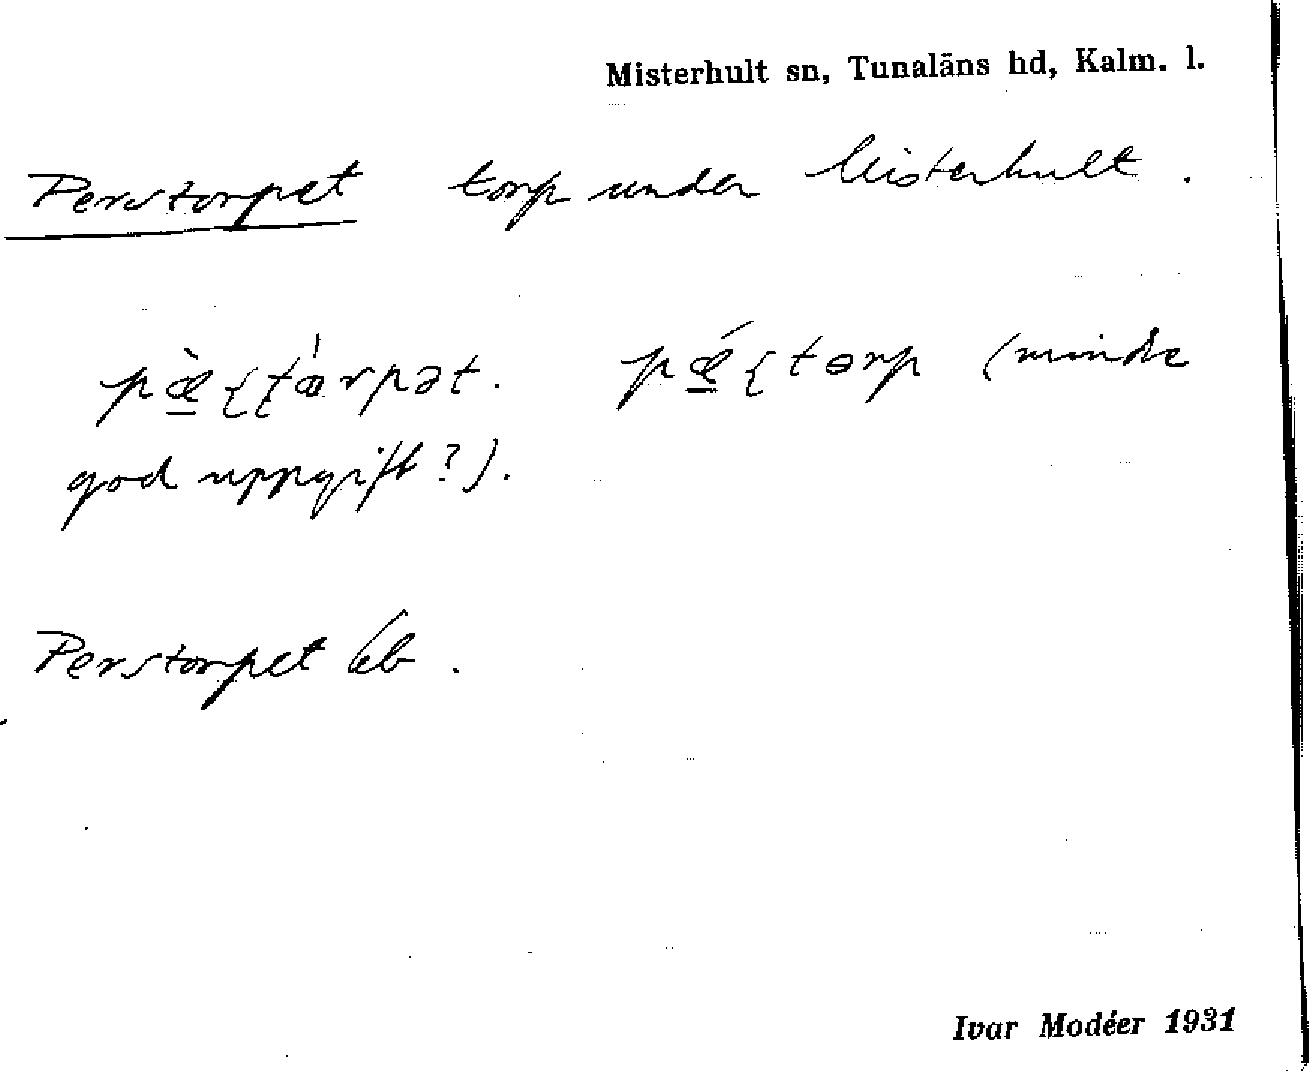 Misterhult sn, Tunaläns hd, Kalm. l.
Perstorpet torp under Misterhult.
torp (mindre
god uppgift?).
Perstorpet
Ivar Modéer 1931